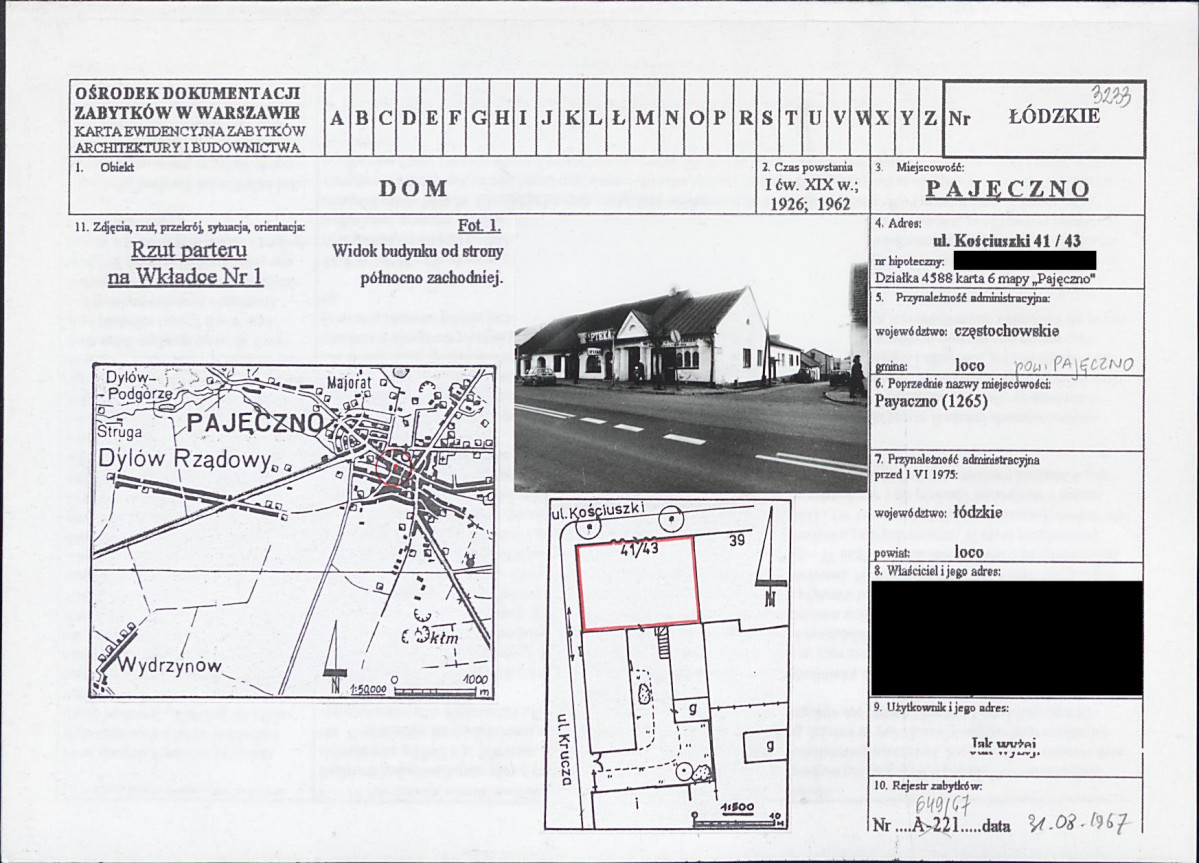 OŚRODEK DOKUMENTACJI
ZABYTKÓW W WARSZAWIE
KARTA EWIDENCYJNA ZABYTKÓW
ARCHITEKTURY I BUDOWNICTWA
A B C D E F G H I J K L Ł M N O P R S T U V W X Y Z
Nr ŁÓDZKIE
3233
1. Obiekt
DOM
2. Czas powstania
I ćw. XIX w.;
1926; 1962
3. Miejscowość:
PAJĘCZNO
11. Zdjęcia, rzut, przekrój, sytuacja, orientacja:
Rzut parteru
na Wkładce Nr 1
Fot. 1.
Widok budynku od strony
północno zachodniej.
APTEKA
4. Adres:
ul. Kościuszki 41 / 43
nr hipoteczny:
Działka 4588 karta 6 mapy „Pajęczno"
5. Przynależność administracyjna:
województwo: częstochowskie
gmina: loco pow. PAJĘCZNO
6. Poprzednie nazwy miejscowości:
Payaczno (1265)
7. Przynależność administracyjna
przed 1 VI 1975:
województwo: łódzkie
powiat: loco
8. Właściciel i jego adres:
9. Użytkownik i jego adres:
Jak wyżej
10. Rejestr zabytków:
649/67
Nr ....A-221.....data 31.08.1967
Dylów-
-Podgórze
Majorat
PAJĘCZNO
Struga
Dylów Rządowy
kłm
Wydrzynów
N
1:50,000
0 1000
m
ul.Kościuszki
41/43
39
N
ul.Krucza
g
g
i
1:500
0 10
M